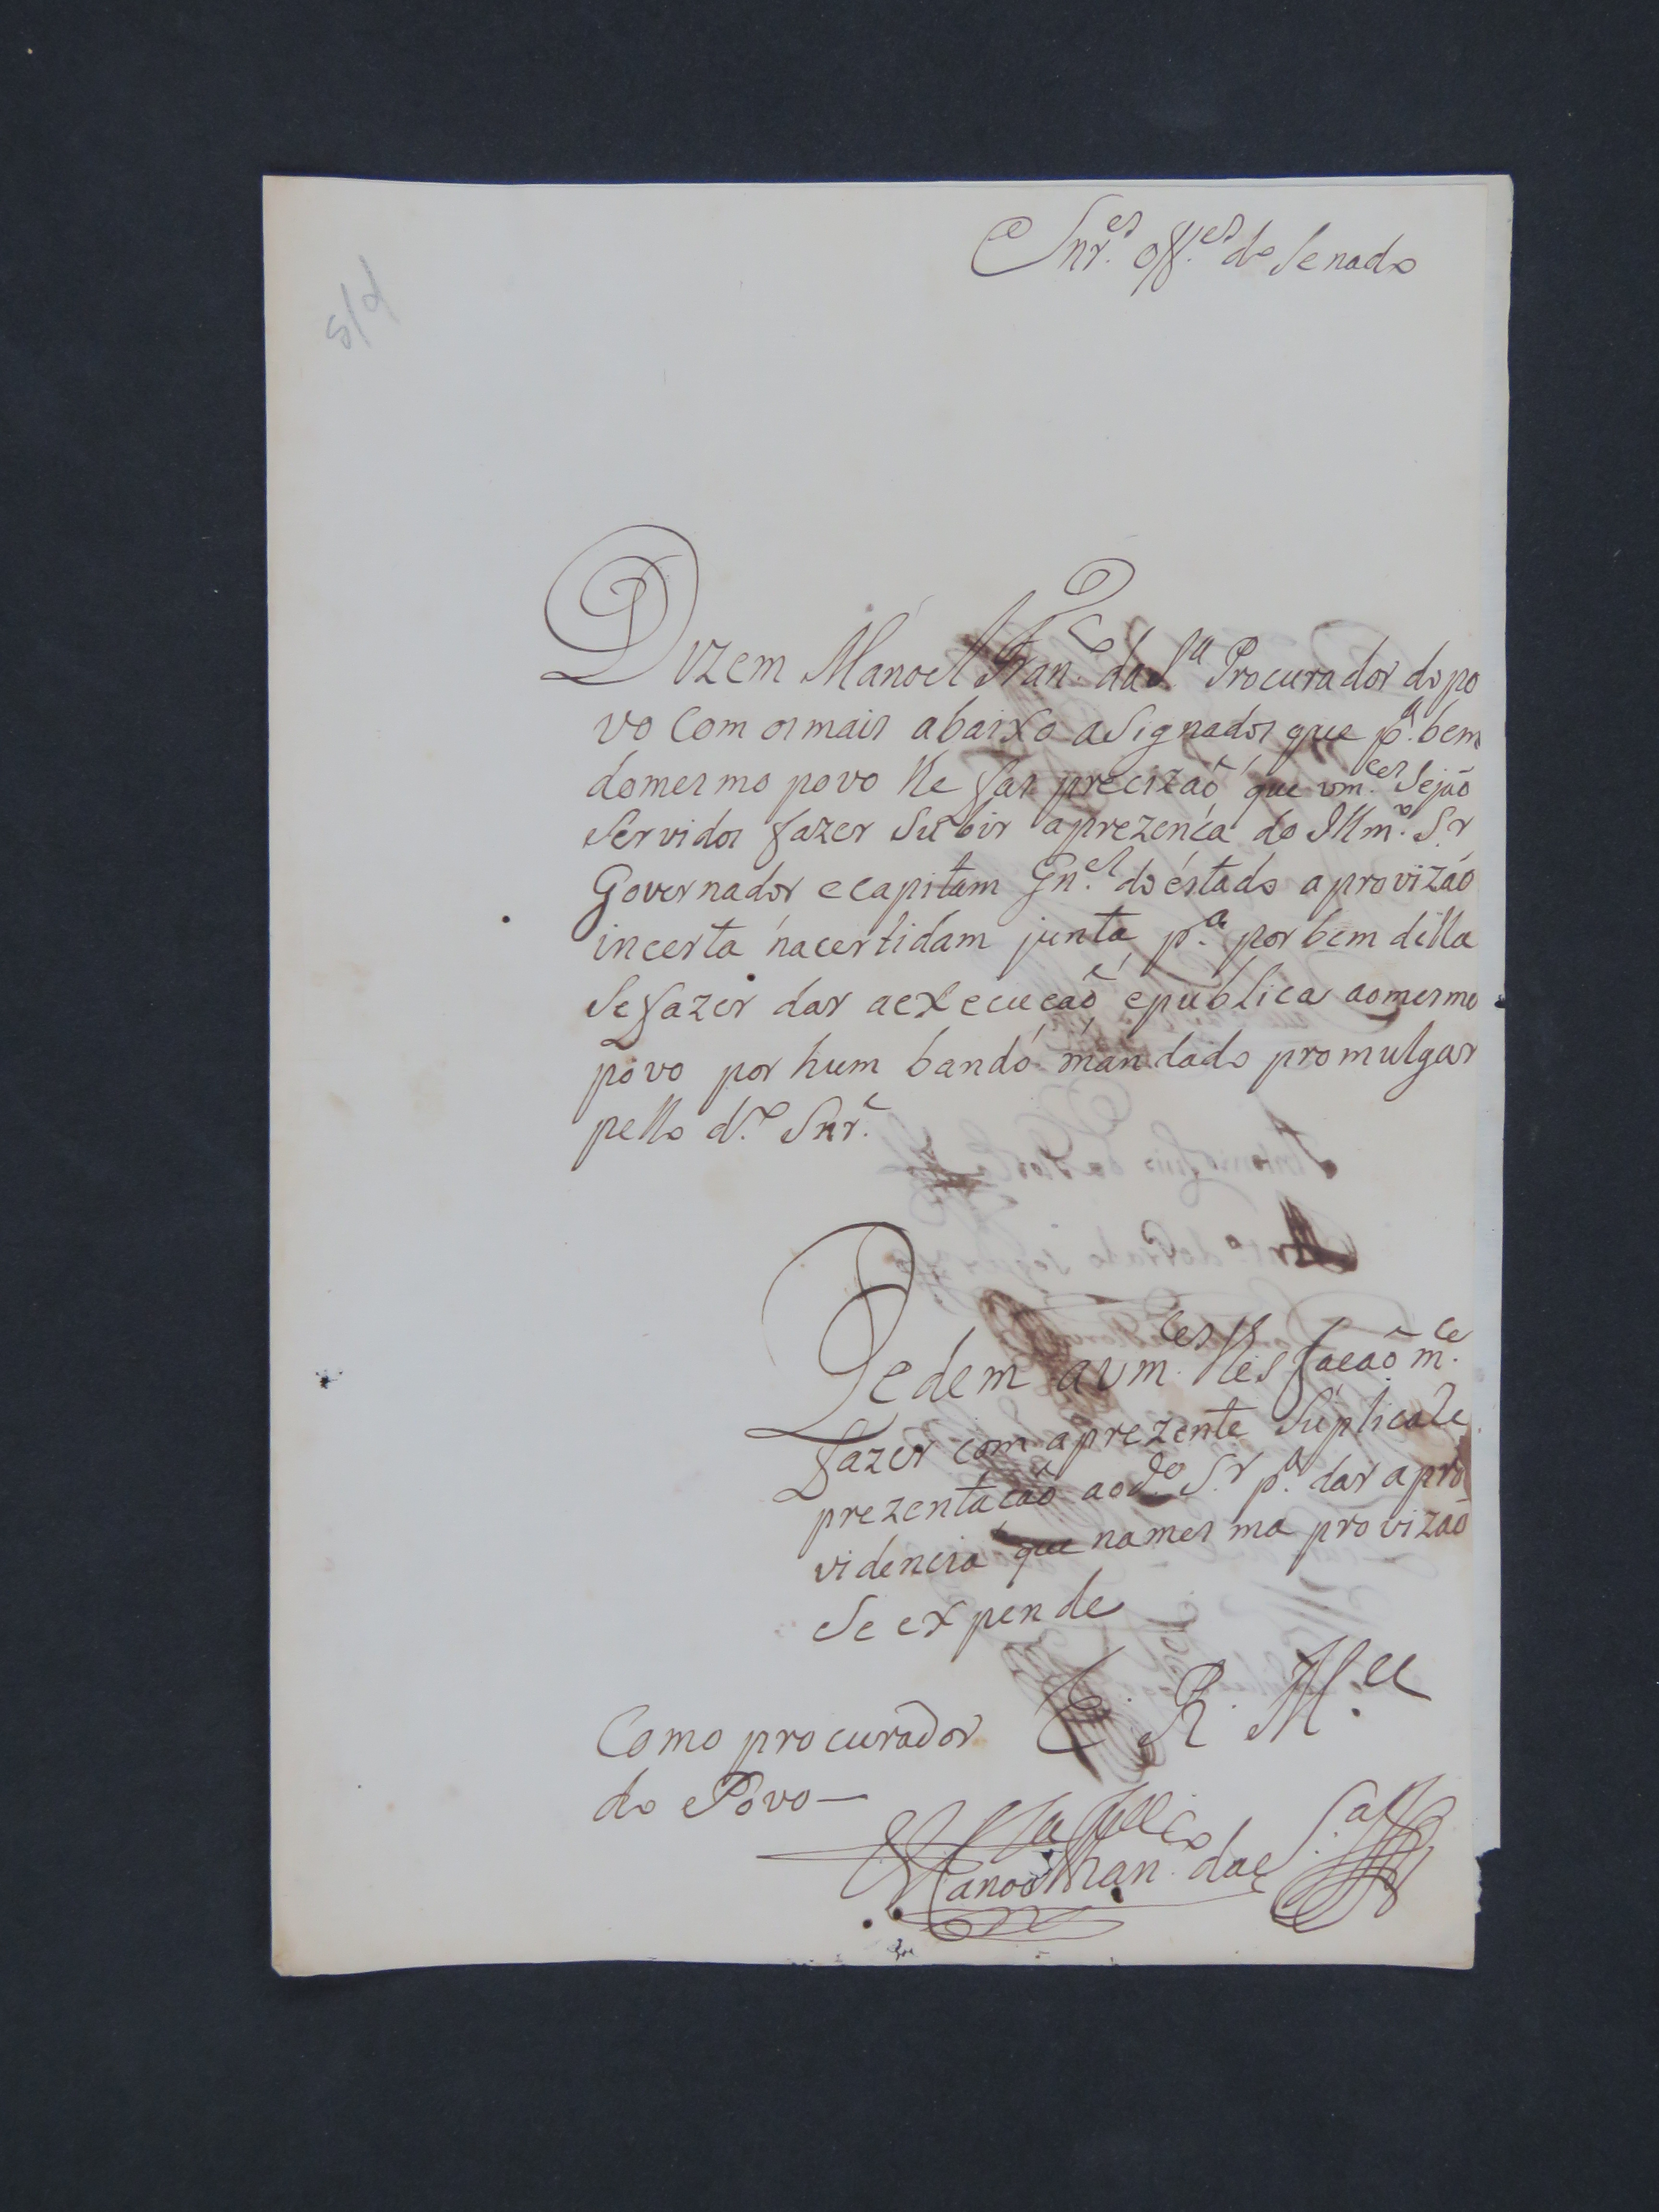 Snr.es off.es do Senado
Dizem Manoel Fran.co da S.a Procurador do po
vo com os mais abaixo asignados que p.a bem
do mesmo povo lhe fas precizaõ que vm.ces Sejaõ
Servidos fazer Subir a prezenca do Illm.o S.r
Governador e capitam Gn.el do estado a provizaõ
incerta na certidam junta p.a por bem della
Se fazer dar a execucaõ e publica ao mesmo
povo por hum bando mandado promulgar
pello d.o Snr.
Pedem a vm.ces lhes facaõ m.ce
fazer com a prezente Suplica Re
prezentacaõ ao d.o S.r p.a dar a pro
videncia que na mesma provizaõ
Se expende
E. R. M.ce
Como procurador
do Povo —
Manoel Fran.co da S.a